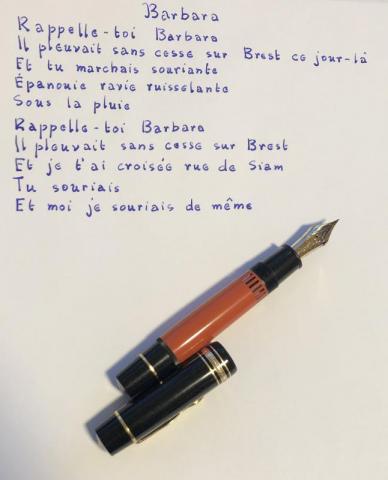 Barbara
Rappelle-toi Barbara
Il pleuvait sans cesse sur Brest ce jour-là
Et tu marchais souriante
Épanouie ravie ruisselante
Sous la pluie
Rappelle-toi Barbara
Il pleuvait sans cesse sur Brest
Et je t'ai croisée rue de Siam
Tu souriais
Et moi je souriais de même